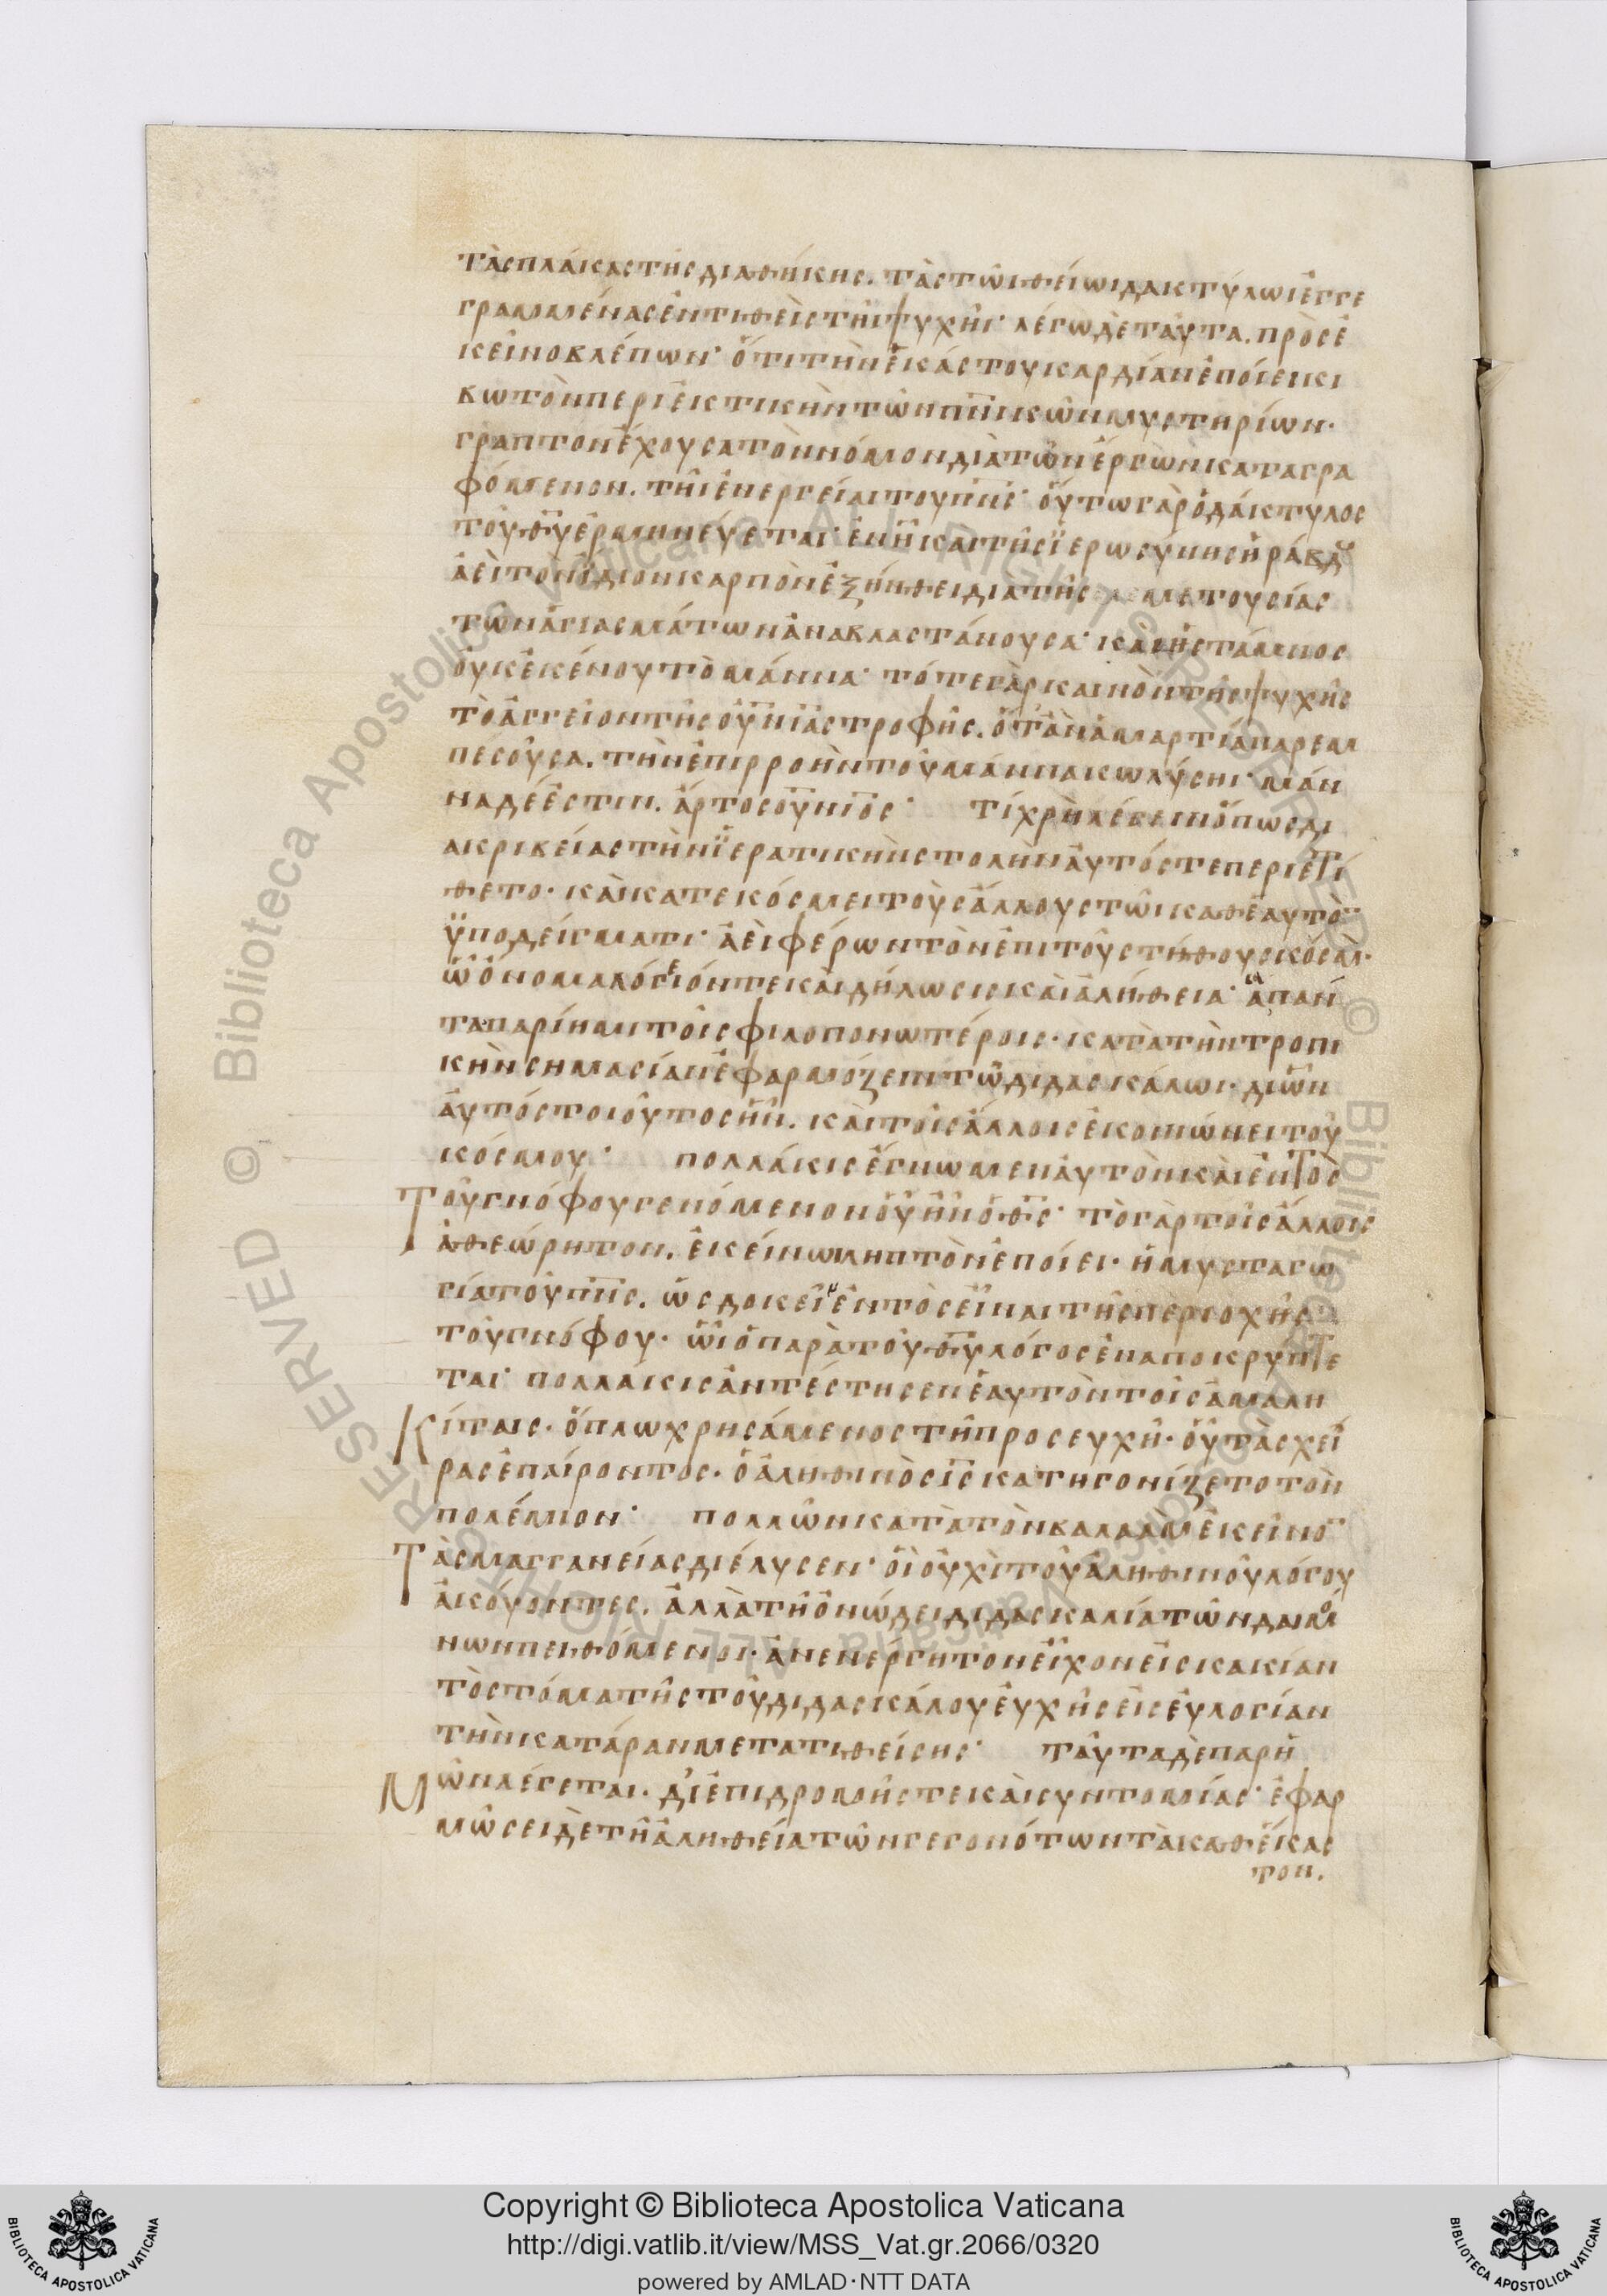 τὰς πλάκας τῆς διαθήκης. τὰς τῶι θείωι δακτύλωι ἐγγε
γραμμένας ἐντιθεὶς τῆι ψυχῆι· λέγω δὲ ταῦτα. πρὸς ἐ
κεῖνο βλέπων· ὅτι τὴν ἑκάστου καρδίαν ἐποίει κι
βωτὸν περιεκτικὴν τῶν πν̅ικῶν μυστηρίων·
γραπτὸν ἔχουσα τὸν νόμον διὰ τῶν ἔργων καταγρα
φόμενον. τῆι ἐνεργείαι του πν̅ς· οὕτω γὰρ ὁ δάκτυλος
τοῦ θ̅υ ἑρμηνεύεται· ἐν ἧι καὶ τῆς ϊερωσύνης ἡ ράβδ
ἀεὶ τὸν ἴδιον καρπὸν ἐξήνθει διὰ τῆς μετουσίας
τῶν ἁγιασμάτων ἀναβλαστάνουσα· καὶ ἡ στάμνος
οὐκ ἐκένου τὸ μάννα· τότε γὰρ καινὸν τῆς ψυχῆς
τὸ ἀγγεῖον τῆς οὐν̅ίας τροφῆς. ὅταν ἁμαρτία παρεμ
πεσοῦσα. τὴν ἐπιρροὴν τοῦ μάννα κωλύσηι· μάν
να δέ ἐστιν. ἄρτος οὐν̅ιος· τί χρὴ λέγειν ὅπως δι
ακριβείας τὴν ϊερατικὴν στολὴν αὐτός τε περιετί
θετο· καὶ κατεκόσμει τοὺς ἄλλους τῶι καθ εαυτὸ
ϋποδείγματι· ἀεὶ φέρων τὸν ἐπι τοῦ στήθους κόσμ·
ὧ ὄνομα λόγιόν τε καὶ δήλωσις καὶ ἀλήθεια· ἃ παν
τα παρίημι τοῖς φιλοπονωτέροις· κατὰ τὴν τροπι
κὴν σημασίαν ἐφαρμόζειν τῶ διδασκάλωι· δι ὧν
αὐτός τοιοῦτος ἦν. καὶ τοῖς ἄλλοις ἐκοινώνει τοῦ
κόσμου· πολλάκις ἔγνωμεν αὐτὸν καὶ ἐντὸς
Τοῦ γνόφου γενόμενον οὗ ἦν ὁ θ̅ς· τὸ γὰρ τοῖς ἄλλοις
ἀθεώρητον. ἐκείνω ληπτὸν ἐποίει· ἡ μυσταγω
γία τοῦ πν̅ς. ὡς δοκεῖν ἐντὸς εἶναι τῆς περιοχῆς
τοῦ γνόφου· ὧι ὁ παρὰ τοῦ θ̅υ λόγος ἐναποκρύπτε
ται· πολλακις ἀντέστησεν ἑαυτὸν τοῖς ἀμαλη
Κίταις· ὅπλω χρησάμενος τῆ προσευχῆ· οὗ τὰς χεῖ
ρας ἐπαίροντος· ὁ ἀληθινὸς ι̅ς κατηγονίζετο τὸν
πολέμιον· πολλῶν κατὰ τὸν βαλααμ ἐκεῖνο
Τὰς μαγγανείας διέλυσεν· οἳ οὐχὶ τοῦ ἀληθινοῦ λόγου
ἀκούοντες. ἀλλὰ τῆ ὀνώδει διδασκαλία τῶν δαιμ
νων πειθόμενοι· ἀνενέργητον εἶχον εἰς κακίαν
τὸ στόμα τῆς τοῦ διδασκάλου εὐχῆς εἰς εὐλογίαν
τὴν κατάραν μετατιθείσης· ταῦτα δὲ παρ ἡ
Μῶν λέγεται. δι ἐπιδρομῆς τε καὶ συντομίας· ἐφαρ
μώσει δὲ τῆ ἀληθεία τῶν γεγονότων τὰ καθ ἕκας
τον.
Copyright © Biblioteca Apostolica Vaticana
http://digi.vatlib.it/view/MSS_Vat.gr.2066/0320
powered by AMLAD·NTT DATA